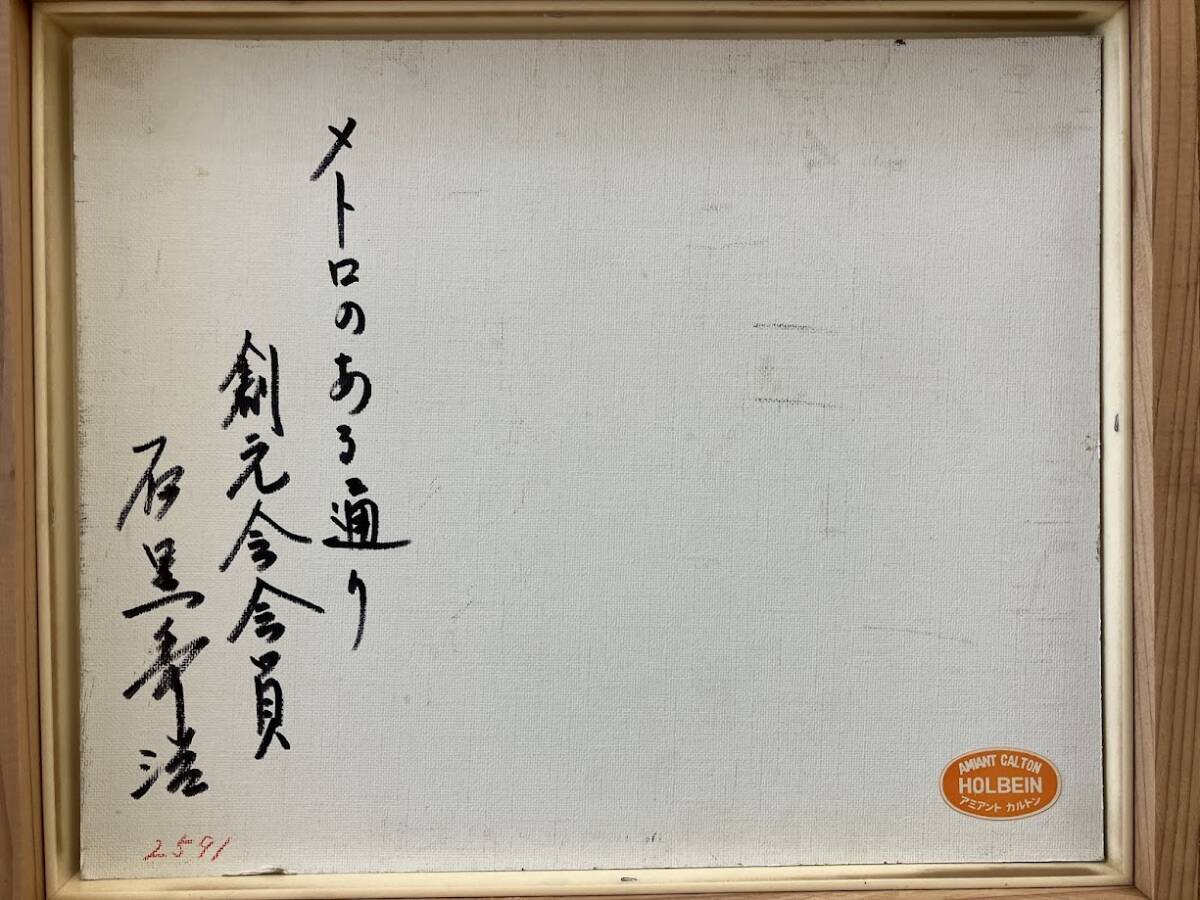 メトロのある通り
創元会会員
石黒寿浩
2591
AMIANT CALTON
HOLBEIN
アミアント カルトン